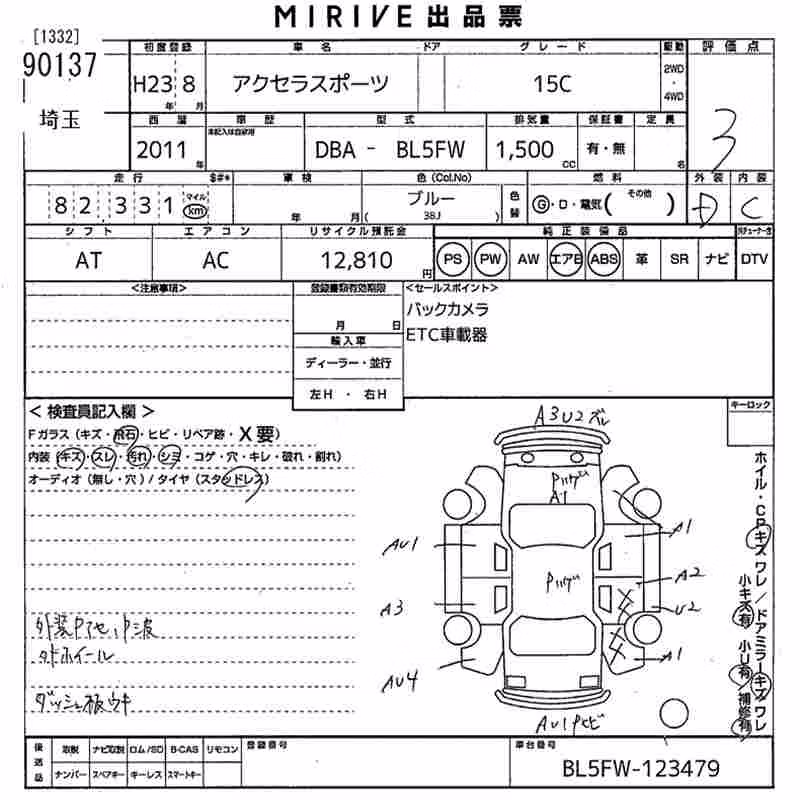 MIRIVE 出品票
[1332]
90137
埼玉
初度登録 車名 ドア グレード 駆動 評価点
H23 8 年 月 アクセラスポーツ 15C 2WD ・ 4WD 3
西暦 車歴 型式 排気量 保証書 定員
2011 年 未記入は自家用 DBA - BL5FW 1,500 cc 有・無 名
走行 $#* 車検 色(Col.No) 燃料 外装 内装
82,331 マイル km 年 月 ブルー ( 38J ) 色替 G・D・電気( その他 ) D C
シフト エアコン リサイクル預託金 純正装備品
AT AC 12,810 円 PS PW AW エアB ABS 革 SR ナビ DTV
<注意事項> 登録書類有効期限 <セールスポイント>
月 日 バックカメラ
輸入車 ETC車載器
ディーラー・並行
左H ・ 右H
<検査員記入欄> キーロック
Fガラス(キズ・飛石・ヒビ・リペア跡・X要)
内装(キズ・スレ・汚れ・シミ・コゲ・穴・キレ・破れ・割れ)
オーディオ(無し・穴)/タイヤ(スタッドレス)
A3U2ズレ
A1
AU1 A1
A3 A2
U2
AU4 A1
AU1
ホイル・CPキズワレ/ドアミラーキズワレ
小キズ有 小U有/補修有
外装
ホイール
ダッシュ板ウキ
後送品 取説 ナビ取説 ロム/SD B-CAS リモコン 登録番号 車台番号
ナンバー スペアキー キーレス スマートキー BL5FW-123479